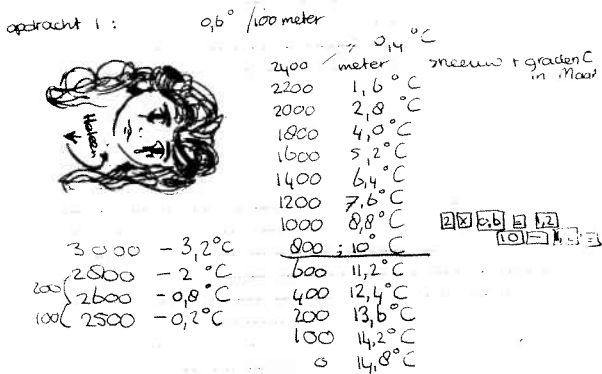 opdracht 1 : 0,6° / 100 meter
2400 / meter 0,4 °C sneeuw + graden C
in Maart
2200 1,6 °C
2000 2,8 °C
1800 4,0 °C
1600 5,2 °C
1400 6,4 °C
1200 7,6 °C
1000 8,8 °C
2 x 0,6 = 1,2
800 ; 10 °C
10 -
600 11,2 °C
400 12,4 °C
200 13,6 °C
100 14,2 °C
0 14,8 °C
3000 - 3,2 °C
2800 - 2 °C
200
2600 - 0,8 °C
100
2500 - 0,2 °C
Heleen